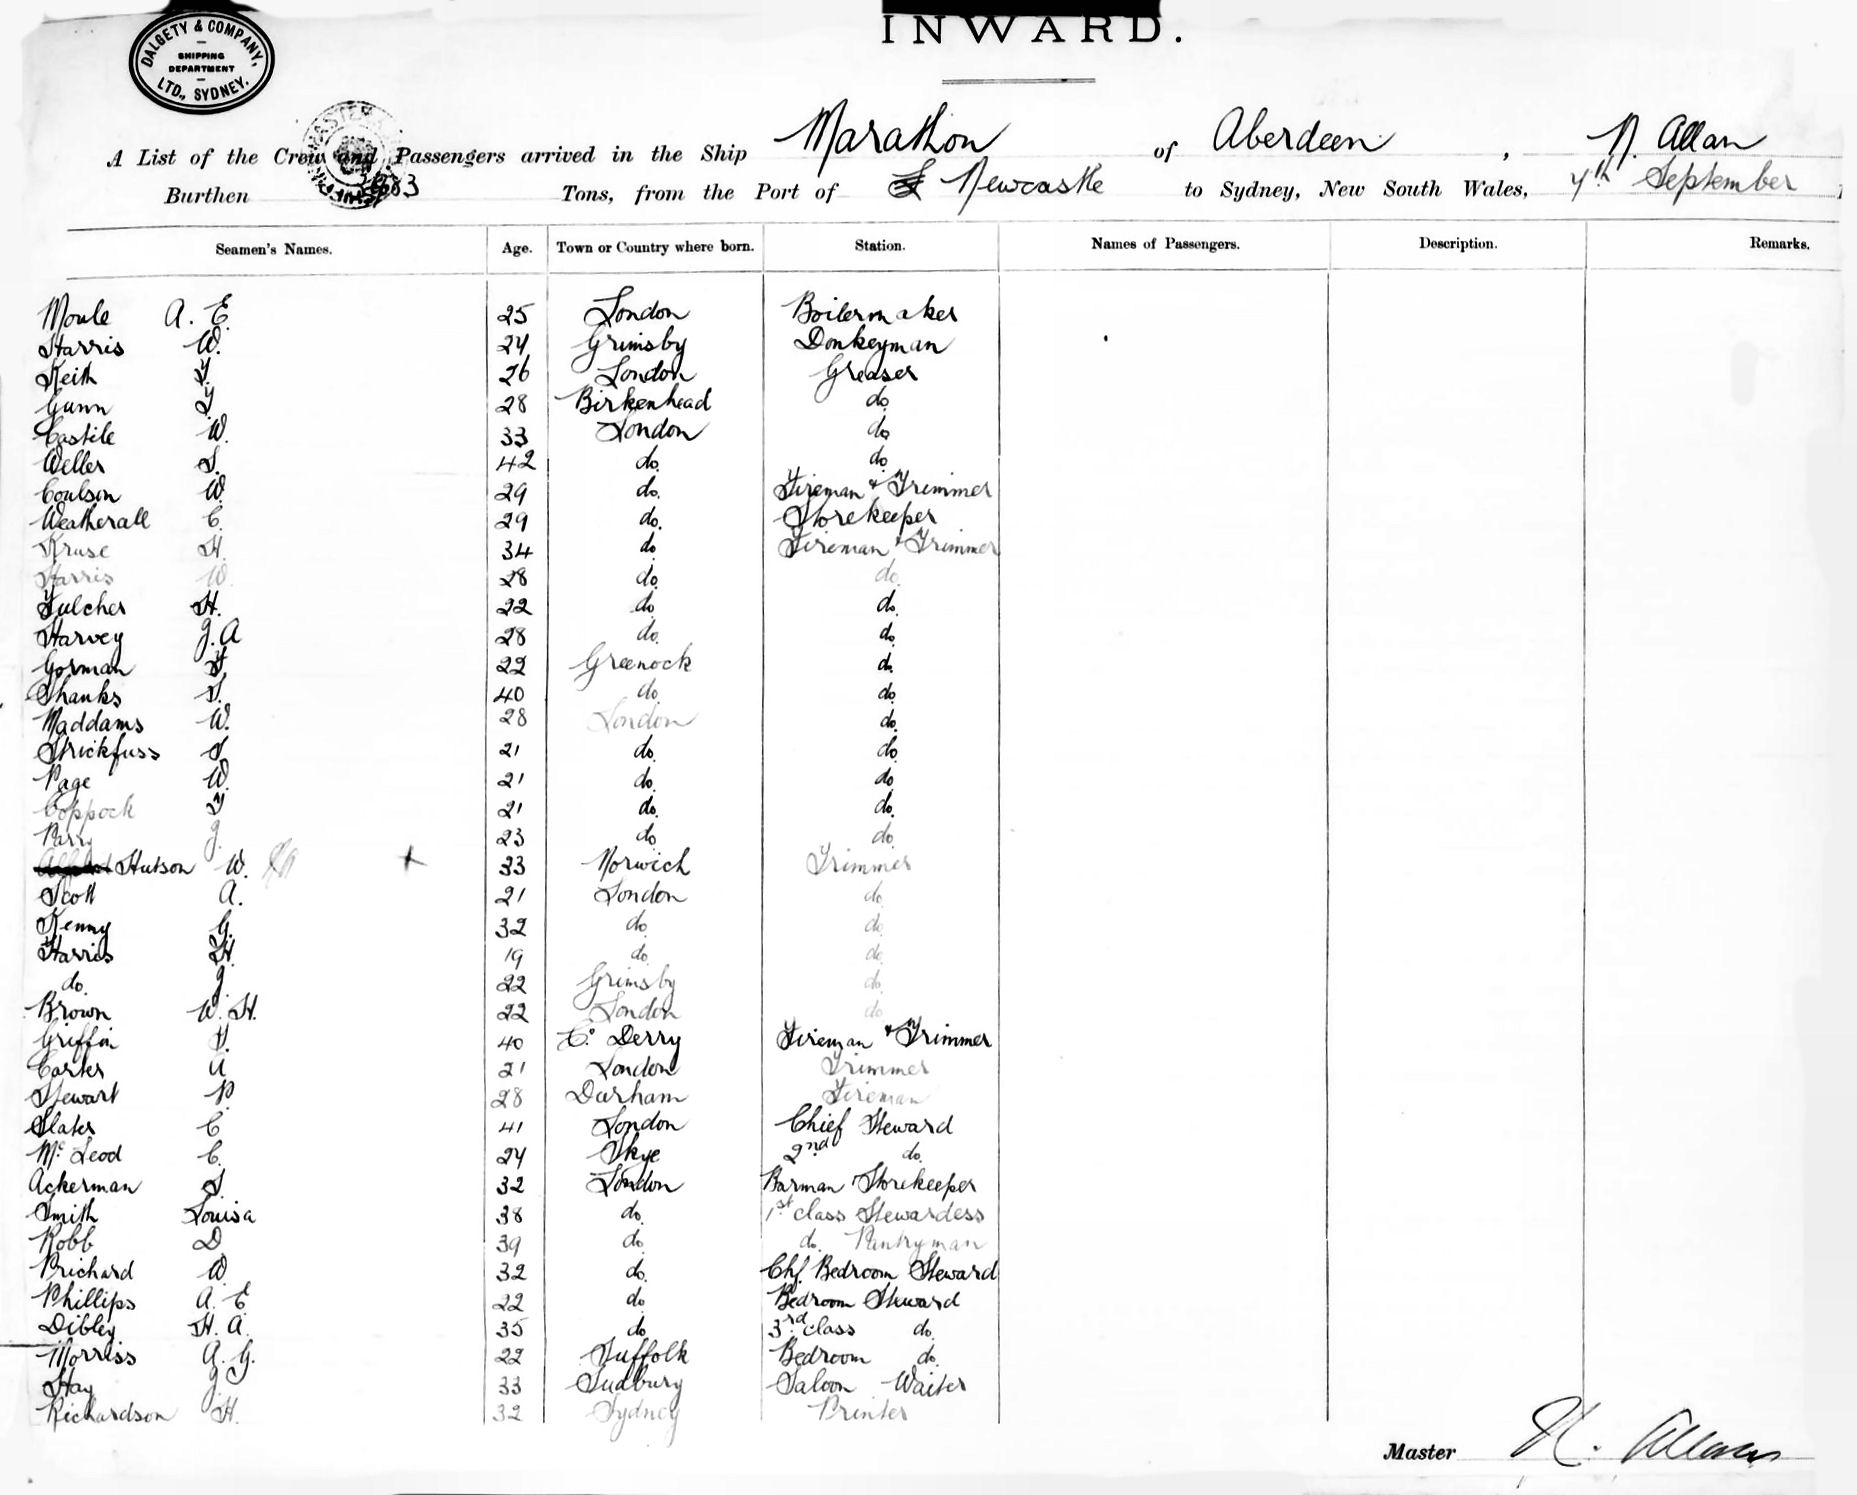 INWARD.
DALGETY & COMPANY,
SHIPPING
DEPARTMENT
LTD., SYDNEY.
A List of the Crew and Passengers arrived in the Ship Marathon of Aberdeen, N. Allan
Burthen Tons, from the Port of Newcastle to Sydney, New South Wales, 7th September
Seamen's Names. Age. Town or Country where born. Station. Names of Passengers. Description. Remarks.
Moule A. E. 25 London Boilermaker
Harris W. 24 Grimsby Donkeyman
Keith 26 London Greaser
Gunn 28 Birkenhead do.
Castile W. 33 London do.
Weller S. 42 do. do.
Coulson W. 29 do. Fireman & Trimmer
Weatherall C. 29 do. Storekeeper
Kruse H. 34 do. Fireman & Trimmer
Harris W. 28 do. do.
Fulcher H. 22 do. do.
Harvey J. A 28 do. do.
Gorman 22 Greenock do.
Shanks 40 do. do.
Maddams W. 28 London do.
Strickfuss 21 do. do.
Page W. 21 do. do.
Coppock 21 do. do.
Parry J. 23 do. do.
Hutson W. 33 Norwich Trimmer
Scott A. 21 London do.
Kenny G. 32 do. do.
Harris H. 19 do. do.
do. J. 22 Grimsby do.
Brown W. H. 22 London do.
Griffin 40 Co. Derry Fireman & Trimmer
Carter A 21 London Trimmer
Stewart P. 28 Durham Fireman
Slater C 41 London Chief Steward
Mc Leod C. 24 Skye 2nd do.
Ackerman S. 32 London Barman Storekeeper
Smith Louisa 38 do. 1st class Stewardess
Robb D 39 do. do. Pantryman
Prichard W. 32 do. Chf. Bedroom Steward
Phillips A. E 22 do. Bedroom Steward
Dibley H. A. 35 do. 3rd class do.
Morriss A. G. 22 Suffolk Bedroom do.
Hay J. 33 Sudbury Saloon Waiter
Richardson H. 32 Sydney Printer
Master N. Allan